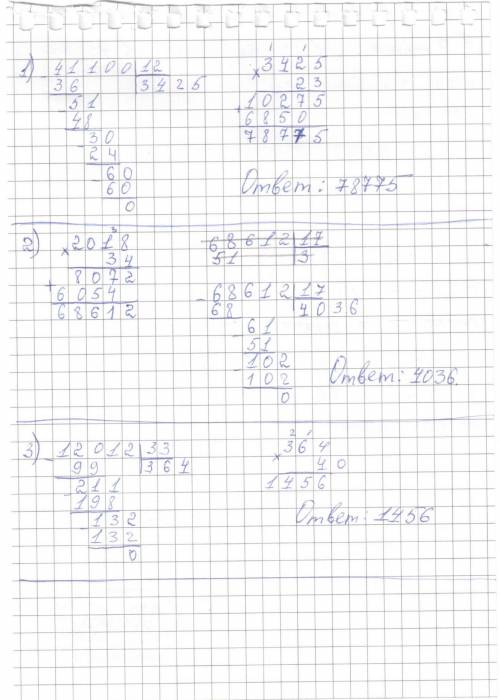 1) - 41100 | 12
36 | 3425
- 51
48
- 30
24
- 60
60
0
× 3425
23
+ 10275
6850
78775
Ответ: 78775
2) × 2018
34
+ 8072
6054
68612
68612 | 17
51 | 3
- 68612 | 17
68 | 4036
- 61
51
- 102
102
0
Ответ: 4036.
3) - 12012 | 33
99 | 364
- 211
198
- 132
132
0
× 364
40
1456
Ответ: 1456